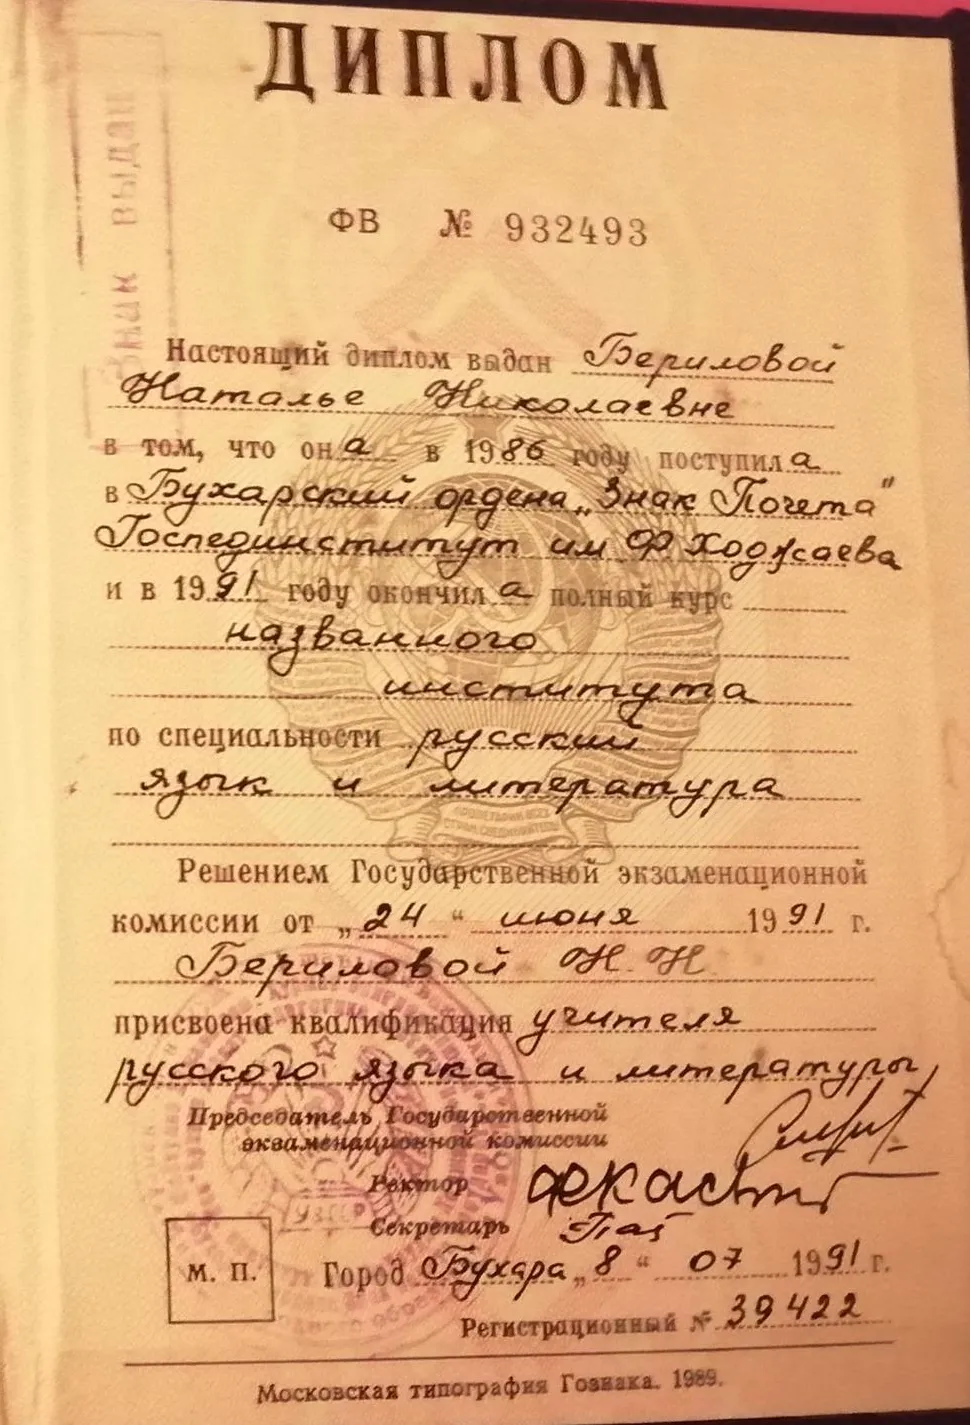 ДИПЛОМ
Знак выдан
ФВ № 932493
Настоящий диплом выдан Бериловой
Наталье Николаевне
в том, что она в 1986 году поступила
в Бухарский ордена „Знак Почета"
Госпединститут им Ф Ходжаева
и в 1991 году окончила полный курс
названного
института
по специальности русский
язык и литература
ПРОЛЕТАРИИ ВСЕХ
СТРАН, СОЕДИНЯЙТЕСЬ!
Решением Государственной экзаменационной
комиссии от „24" июня 1991 г.
Бериловой Н. Н.
присвоена квалификация учителя
русского языка и литературы
Председатель Государственной
экзаменационной комиссии
Ректор
Секретарь
УзССР
М. П. Город Бухара „8" 07 1991 г.
Регистрационный № 39422
Московская типография Гознака. 1989.